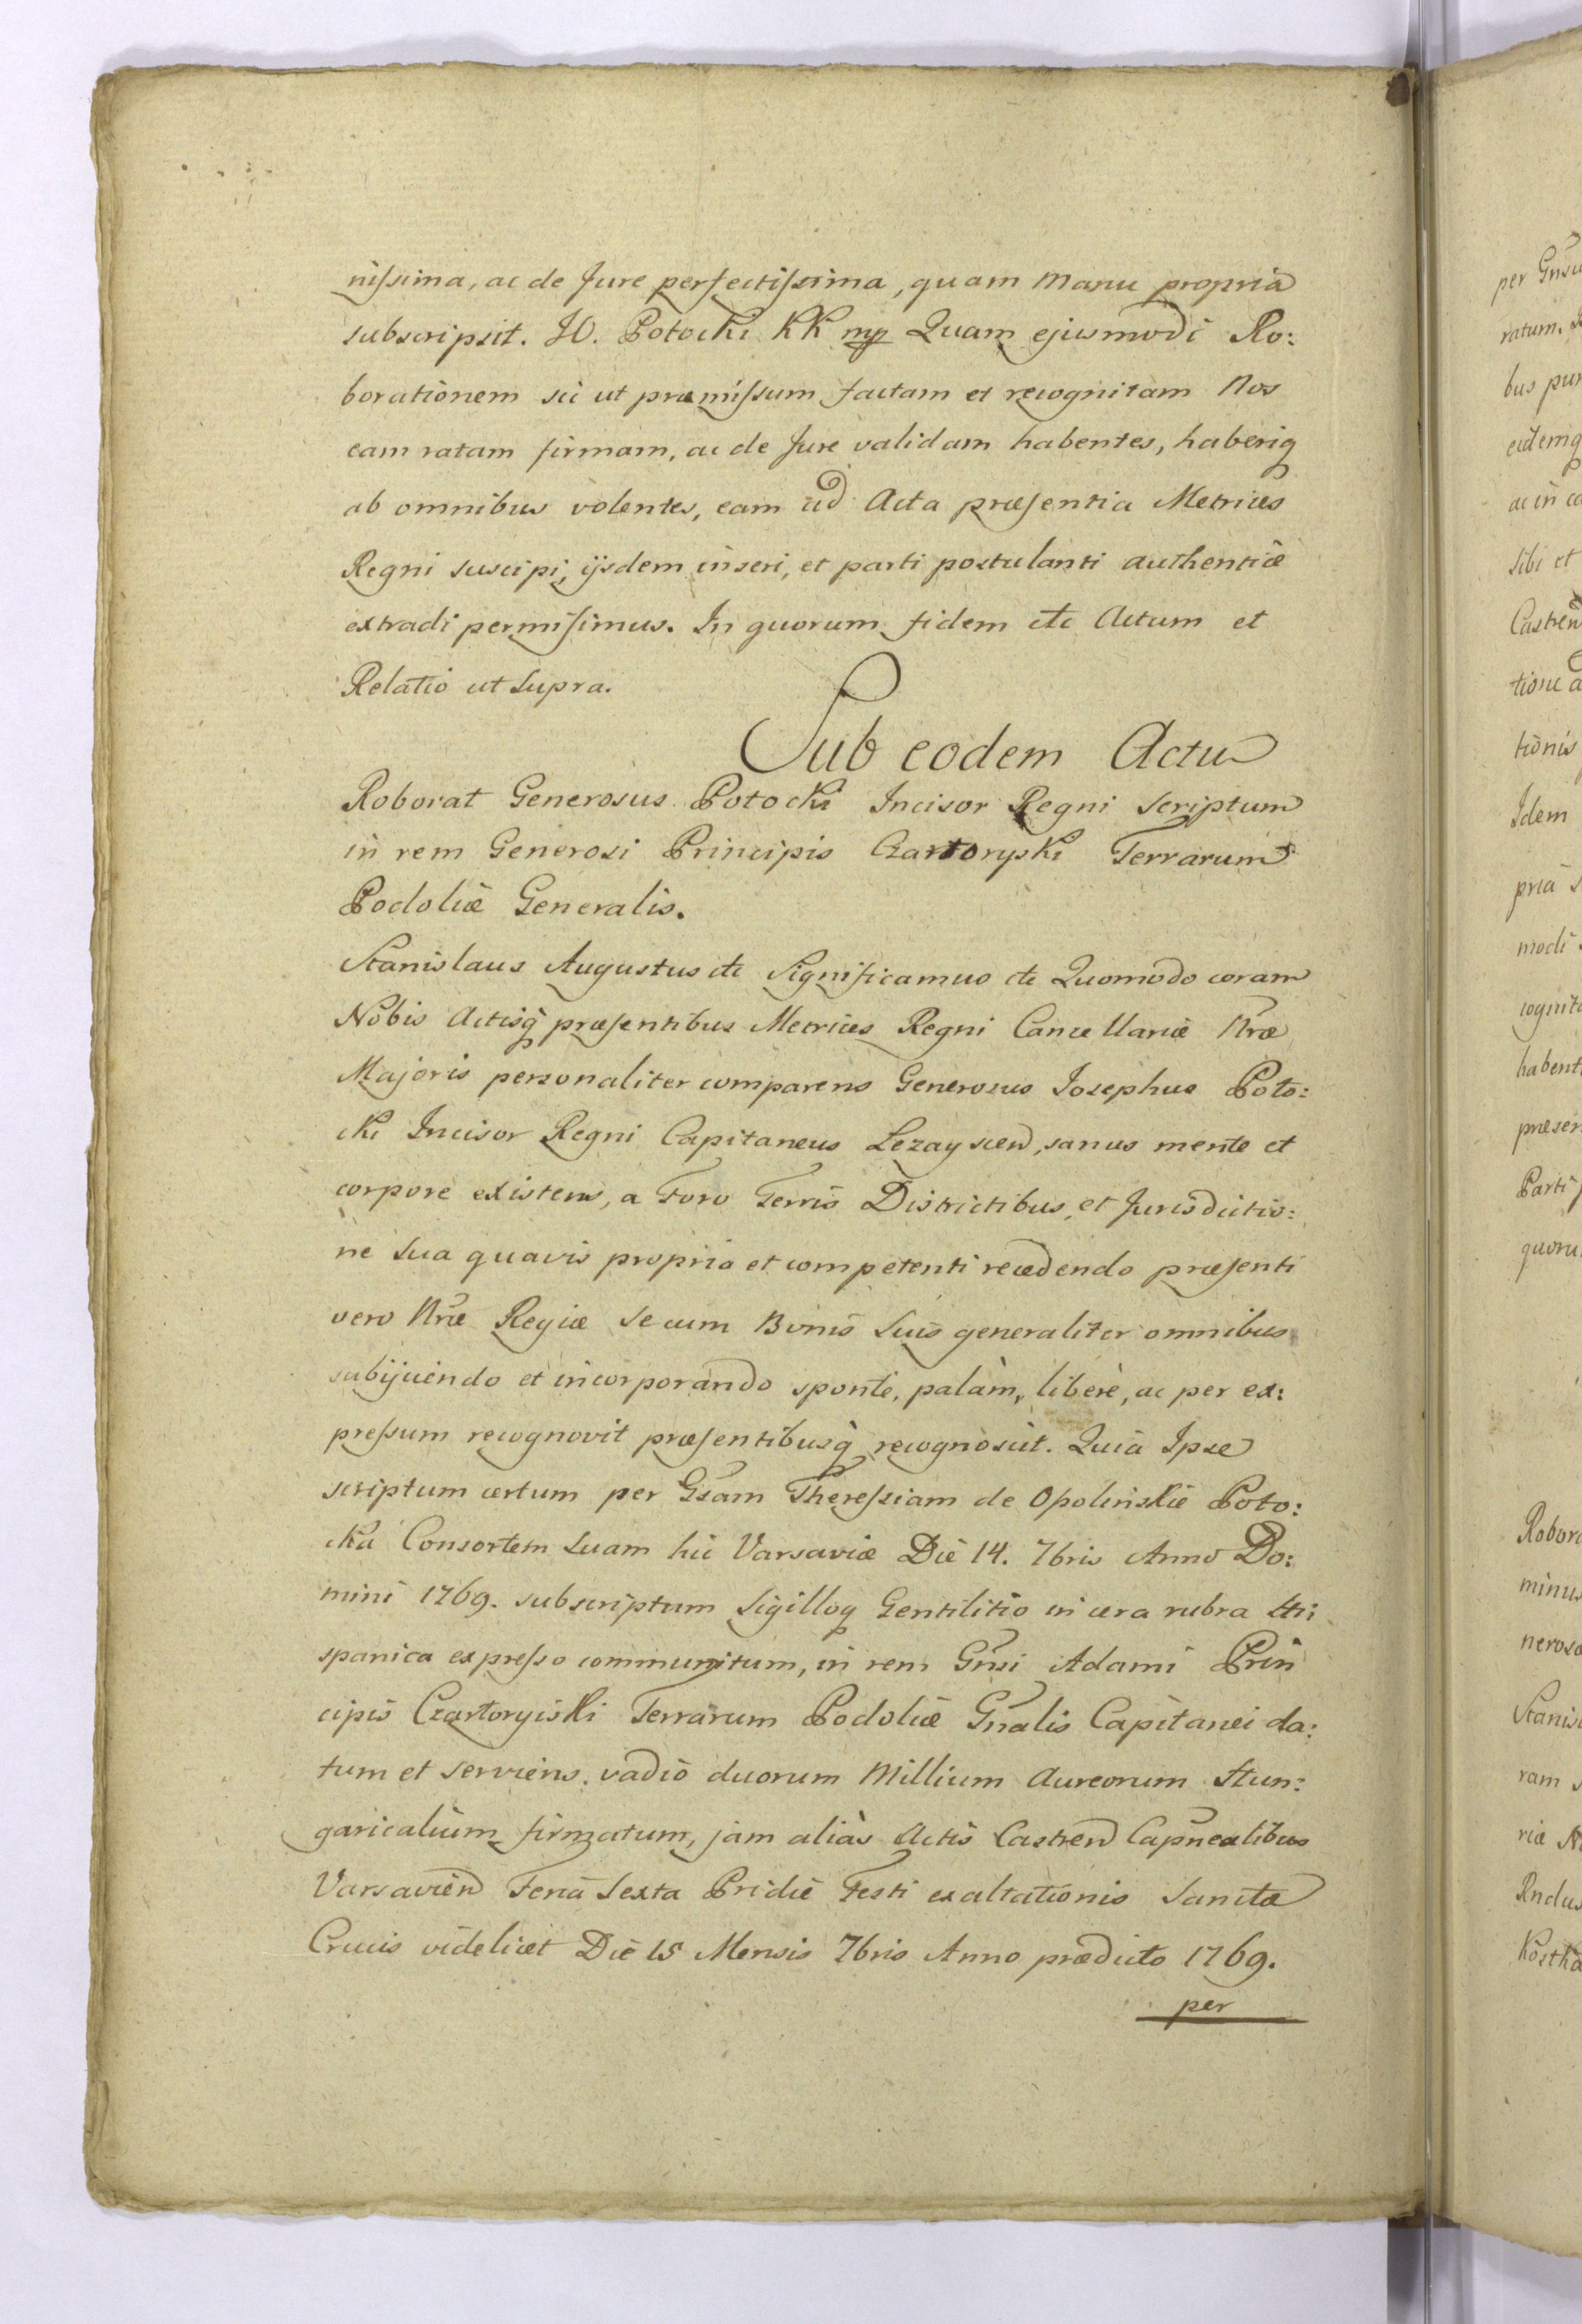 nissima, ac de Jure perfectissima, quam Manu propria
subscripsit. JO. Potocki KK mp Quam ejusmodi Ro:
borationem sic ut præmissum factam et recognitam Nos
eam ratam firmam, ac de Jure validam habentes, haberiq
ab omnibus volentes, eam ad Acta præsentia Metrices
Regni suscipi, ijsdem inseri, et parti postulanti authenticè
extradi permisimus. In quorum fidem etc Actum et
Relatio ut Supra.
Sub eodem Actu
Roborat Generosus Potocki Incisor Regni Scriptum
in rem Generosi Principis Czartoryski Terrarum
Podoliæ Generalis.
Stanislaus Augustus etc Significamus etc Quomodo coram
Nobis Actisq præsentibus Metrices Regni Cancellariæ Nræ
Majoris personaliter comparens Generosus Josephus Poto:
cki Incisor Regni Capitaneus Lezayscen, sanus mente et
corpore existens, a Foro Terris Districtibus, et Jurisdictio:
ne Sua quavis propria et competenti recedendo præsenti
vero Nræ Regiæ Se cum Bonis Suis generaliter omnibus
subijciendo et incorporando sponte, palàm, liberè, ac per ex:
pressum recognovit præsentibusq recognoscit. Quià Ipse
scriptum certum per Gsam Theressiam de Opolinskie Poto:
cka Consortem Suam hic Varsaviæ Die 14. 7bris Anno Do:
mini 1769. subscriptum Sigilloq Gentilitio in cera rubra Hi:
spanica expresso communitum, in rem Gnsi Adami Prin
cipis Czartoryiski Terrarum Podoliæ Gnalis Capitanei da:
tum et serviens. vadio duorum Millium Aureorum Hun:
garicalium firmatum, jam aliàs Actis Castren Capnealibus
Varsavien Feria Sexta Pridie Festi exaltationis Sanctæ
Crucis videlicet Die 15 Mensis 7bris Anno prædicto 1769.
per
per Gnsu
ratum.
bus pur
eidemq
ac in co
sibi et
Castren
tione a
tionis
Idem
pria s
modi
cognita
habent
præsen
Parti p
quoru
Robora
minus
neroso
Stanis
ram s
riæ N
Rndus
Kostka